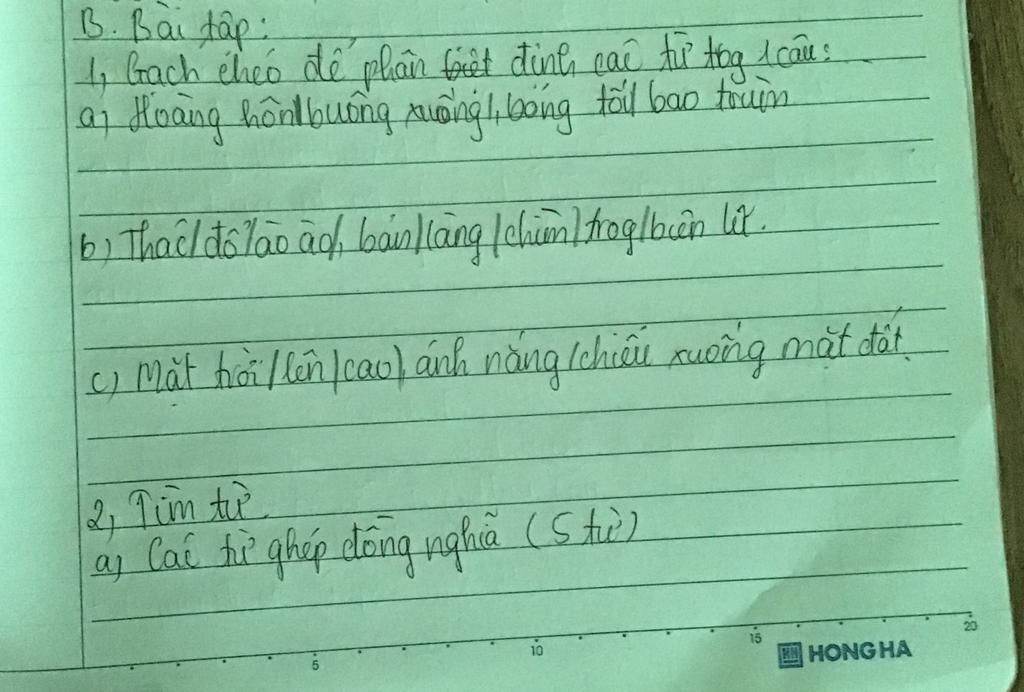 B. Bài tập:
1, Gạch chéo để phân biệt định các từ trog 1 câu:
a, Hoàng hôn/buông xuống/, bóng tối/ bao trùm
b, Thác/đổ/ào ào/, bản/làng/chìm/trog/biển lử.
c, Mặt trời/lên/cao/, ánh nắng/chiếu xuống mặt đất.
2, Tìm từ
a, Các từ ghép đồng nghĩa (5 từ)
5 10 15 20
HONG HA